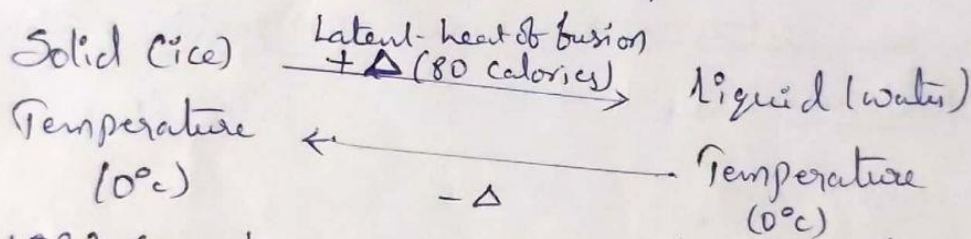 Solid (ice)
Latent-heat of fusion
+Δ (80 calories)
liquid (water)
Temperature
(0°c)
-Δ
Temperature
(0°c)